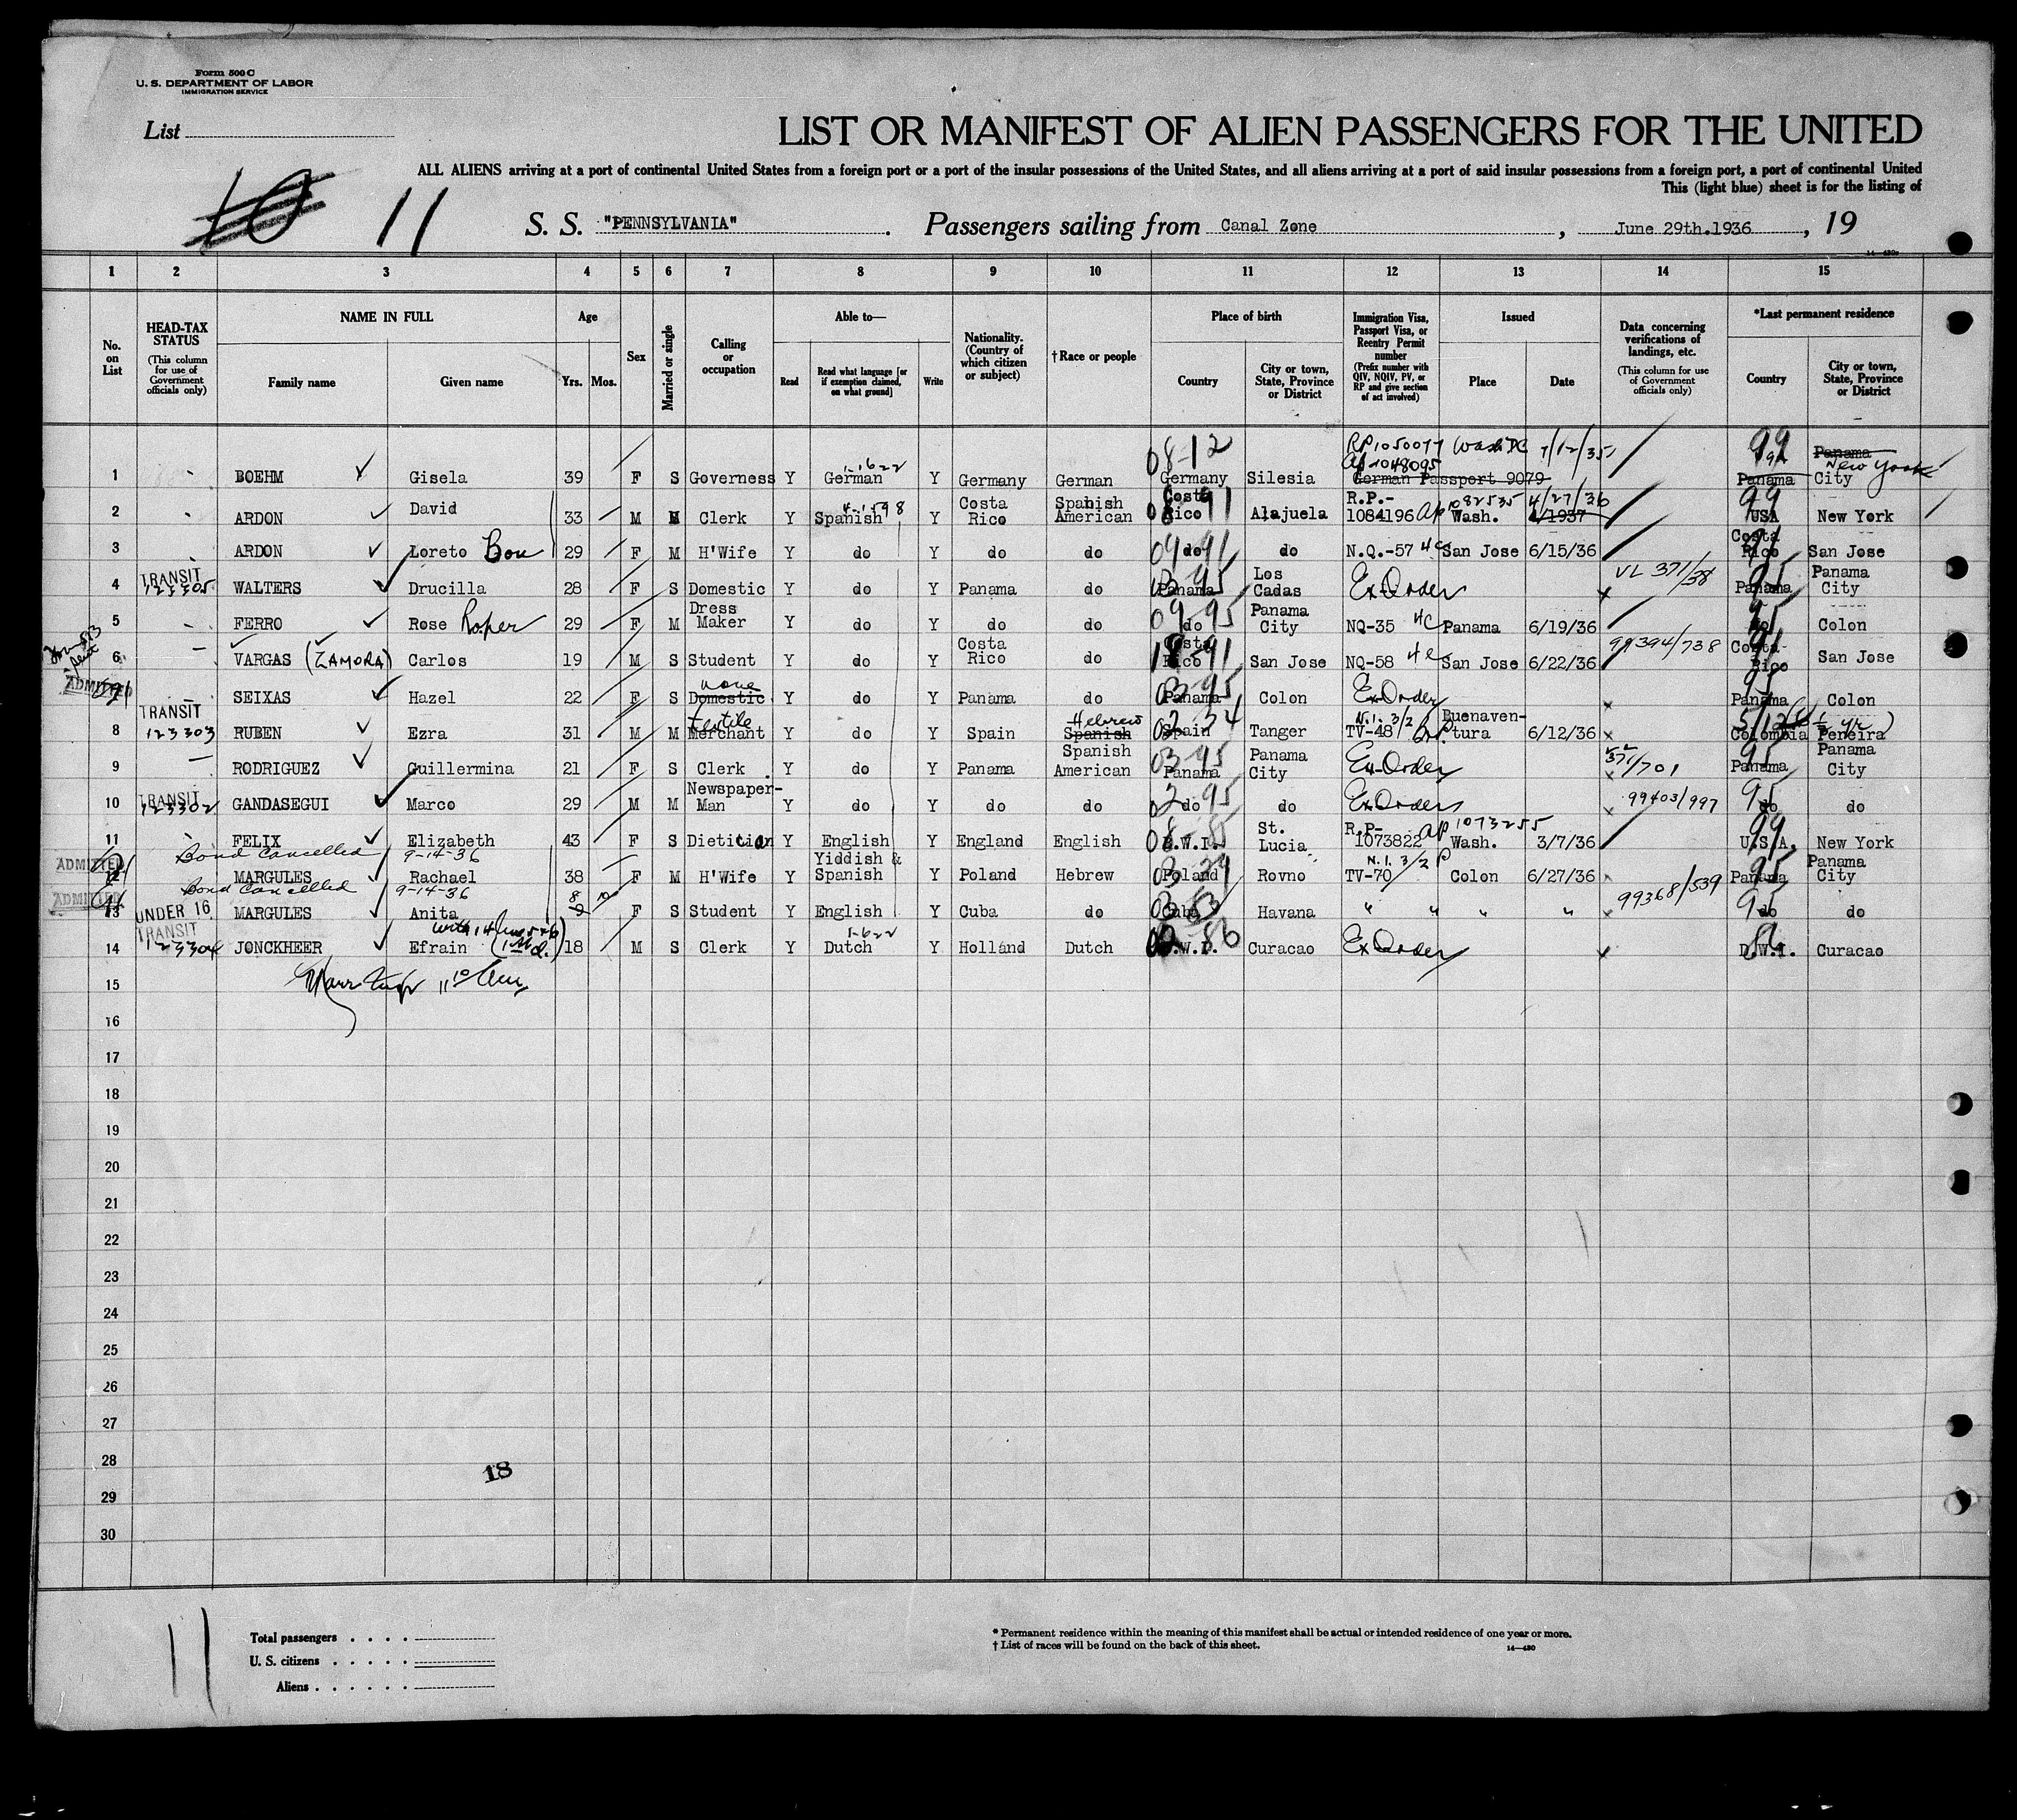 Form 500 C
U. S. DEPARTMENT OF LABOR
IMMIGRATION SERVICE
List
LIST OR MANIFEST OF ALIEN PASSENGERS FOR THE UNITED
ALL ALIENS arriving at a port of continental United States from a foreign port or a port of the insular possessions of the United States, and all aliens arriving at a port of said insular possessions from a foreign port, a port of continental United
This (light blue) sheet is for the listing of
10 11 S. S. "PENNSYLVANIA". Passengers sailing from Canal Zone, June 29th.1936, 19
1 2 3 4 5 6 7 8 9 10 11 12 13 14 15
No. on List
HEAD-TAX STATUS (This column for use of Government officials only)
NAME IN FULL Family name Given name
Age Yrs. Mos.
Sex
Married or single
Calling or occupation
Able to— Read Read what language [or if exemption claimed, on what ground] Write
Nationality. (Country of which citizen or subject)
†Race or people
Place of birth Country City or town, State, Province or District
Immigration Visa, Passport Visa, or Reentry Permit number (Prefix number with QIV, NQIV, PV, or RP and give section of act involved)
Issued Place Date
Data concerning verifications of landings, etc. (This column for use of Government officials only)
*Last permanent residence Country City or town, State, Province or District
08-12 RP1050077 Wash DC 7/12/35 99 Panama
1-1622 ap 1048095 New York
1 BOEHM Gisela 39 F S Governess Y German Y Germany German Germany Silesia German Passport 9079 Panama City
2 ARDON David 33 M M Clerk Y Spanish 4-1598 Y Costa Rico Spanish American Costa Rico 91 Alajuela R.P.- 1084196 ap 1082535 Wash. 4/27/36 1937 99 USA New York
3 ARDON Loreto Bou 29 F M H'Wife Y do Y do do 09 do 91 do N.Q.-57 4c San Jose 6/15/36 Costa Rico 91 San Jose
4 TRANSIT 123305 WALTERS Drucilla 28 F S Domestic Y do Y Panama do Panama 95 Los Cadas Ex Order VL 371/38 Panama 95 Panama City
5 FERRO Rose Roper 29 F M Dress Maker Y do Y do do 09-95 do Panama City NQ-35 4C Panama 6/19/36 95 do Colon
6 VARGAS (ZAMORA) Carlos 19 M S Student Y do Y Costa Rico do Costa Rico 91 San Jose NQ-58 4c San Jose 6/22/36 99394/738 Costa Rico 91 San Jose
ADMITTED SEIXAS Hazel 22 F S none Domestic Y do Y Panama do 03-95 Panama Colon Ex Order 95 Panama Colon
8 TRANSIT 123303 RUBEN Ezra 31 M M Textile Merchant Y do Y Spain Hebrew Spanish 02-34 Spain Tanger N.I. 3/2 TV-48 Buenaven-tura 6/12/36 Colombia Pereira
9 RODRIGUEZ Guillermina 21 F S Clerk Y do Y Panama Spanish American 03-95 Panama Panama City Ex Order 371/701 95 Panama Panama City
10 TRANSIT 123302 GANDASEGUI Marco 29 M M Newspaper-Man Y do Y do do 02-95 do do Ex Order 99403/997 95 do do
11 FELIX Elizabeth 43 F S Dietician Y English Y England English 08-85 B.W.I. St. Lucia R.P- 1073822 ap 1073255 Wash. 3/7/36 99 U.S.A. New York
Bond Cancelled 9-14-36
ADMITTED 12 MARGULES Rachael 38 F M H'Wife Y Yiddish & Spanish Y Poland Hebrew 03-29 Poland Rovno N.I. 3/2 P TV-70 Colon 6/27/36 95 Panama Panama City
Bond Cancelled 9-14-36
ADMITTED 13 UNDER 16 MARGULES Anita 8 9 10 F S Student Y English Y Cuba do Cuba Havana " " " " 99368/539 95 do do
14 TRANSIT 123304 JONCKHEER Efrain 18 M S Clerk Y Dutch 1-622 Y Holland Dutch D.W.I. 86 Curacao Ex Order D.W.I. 86 Curacao
15
16
17
18
19
20
21
22
23
24
25
26
27
28
18
29
30
11
Total passengers . . . .
U. S. citizens . . . . .
Aliens . . . . . .
* Permanent residence within the meaning of this manifest shall be actual or intended residence of one year or more.
† List of races will be found on the back of this sheet.
14—430